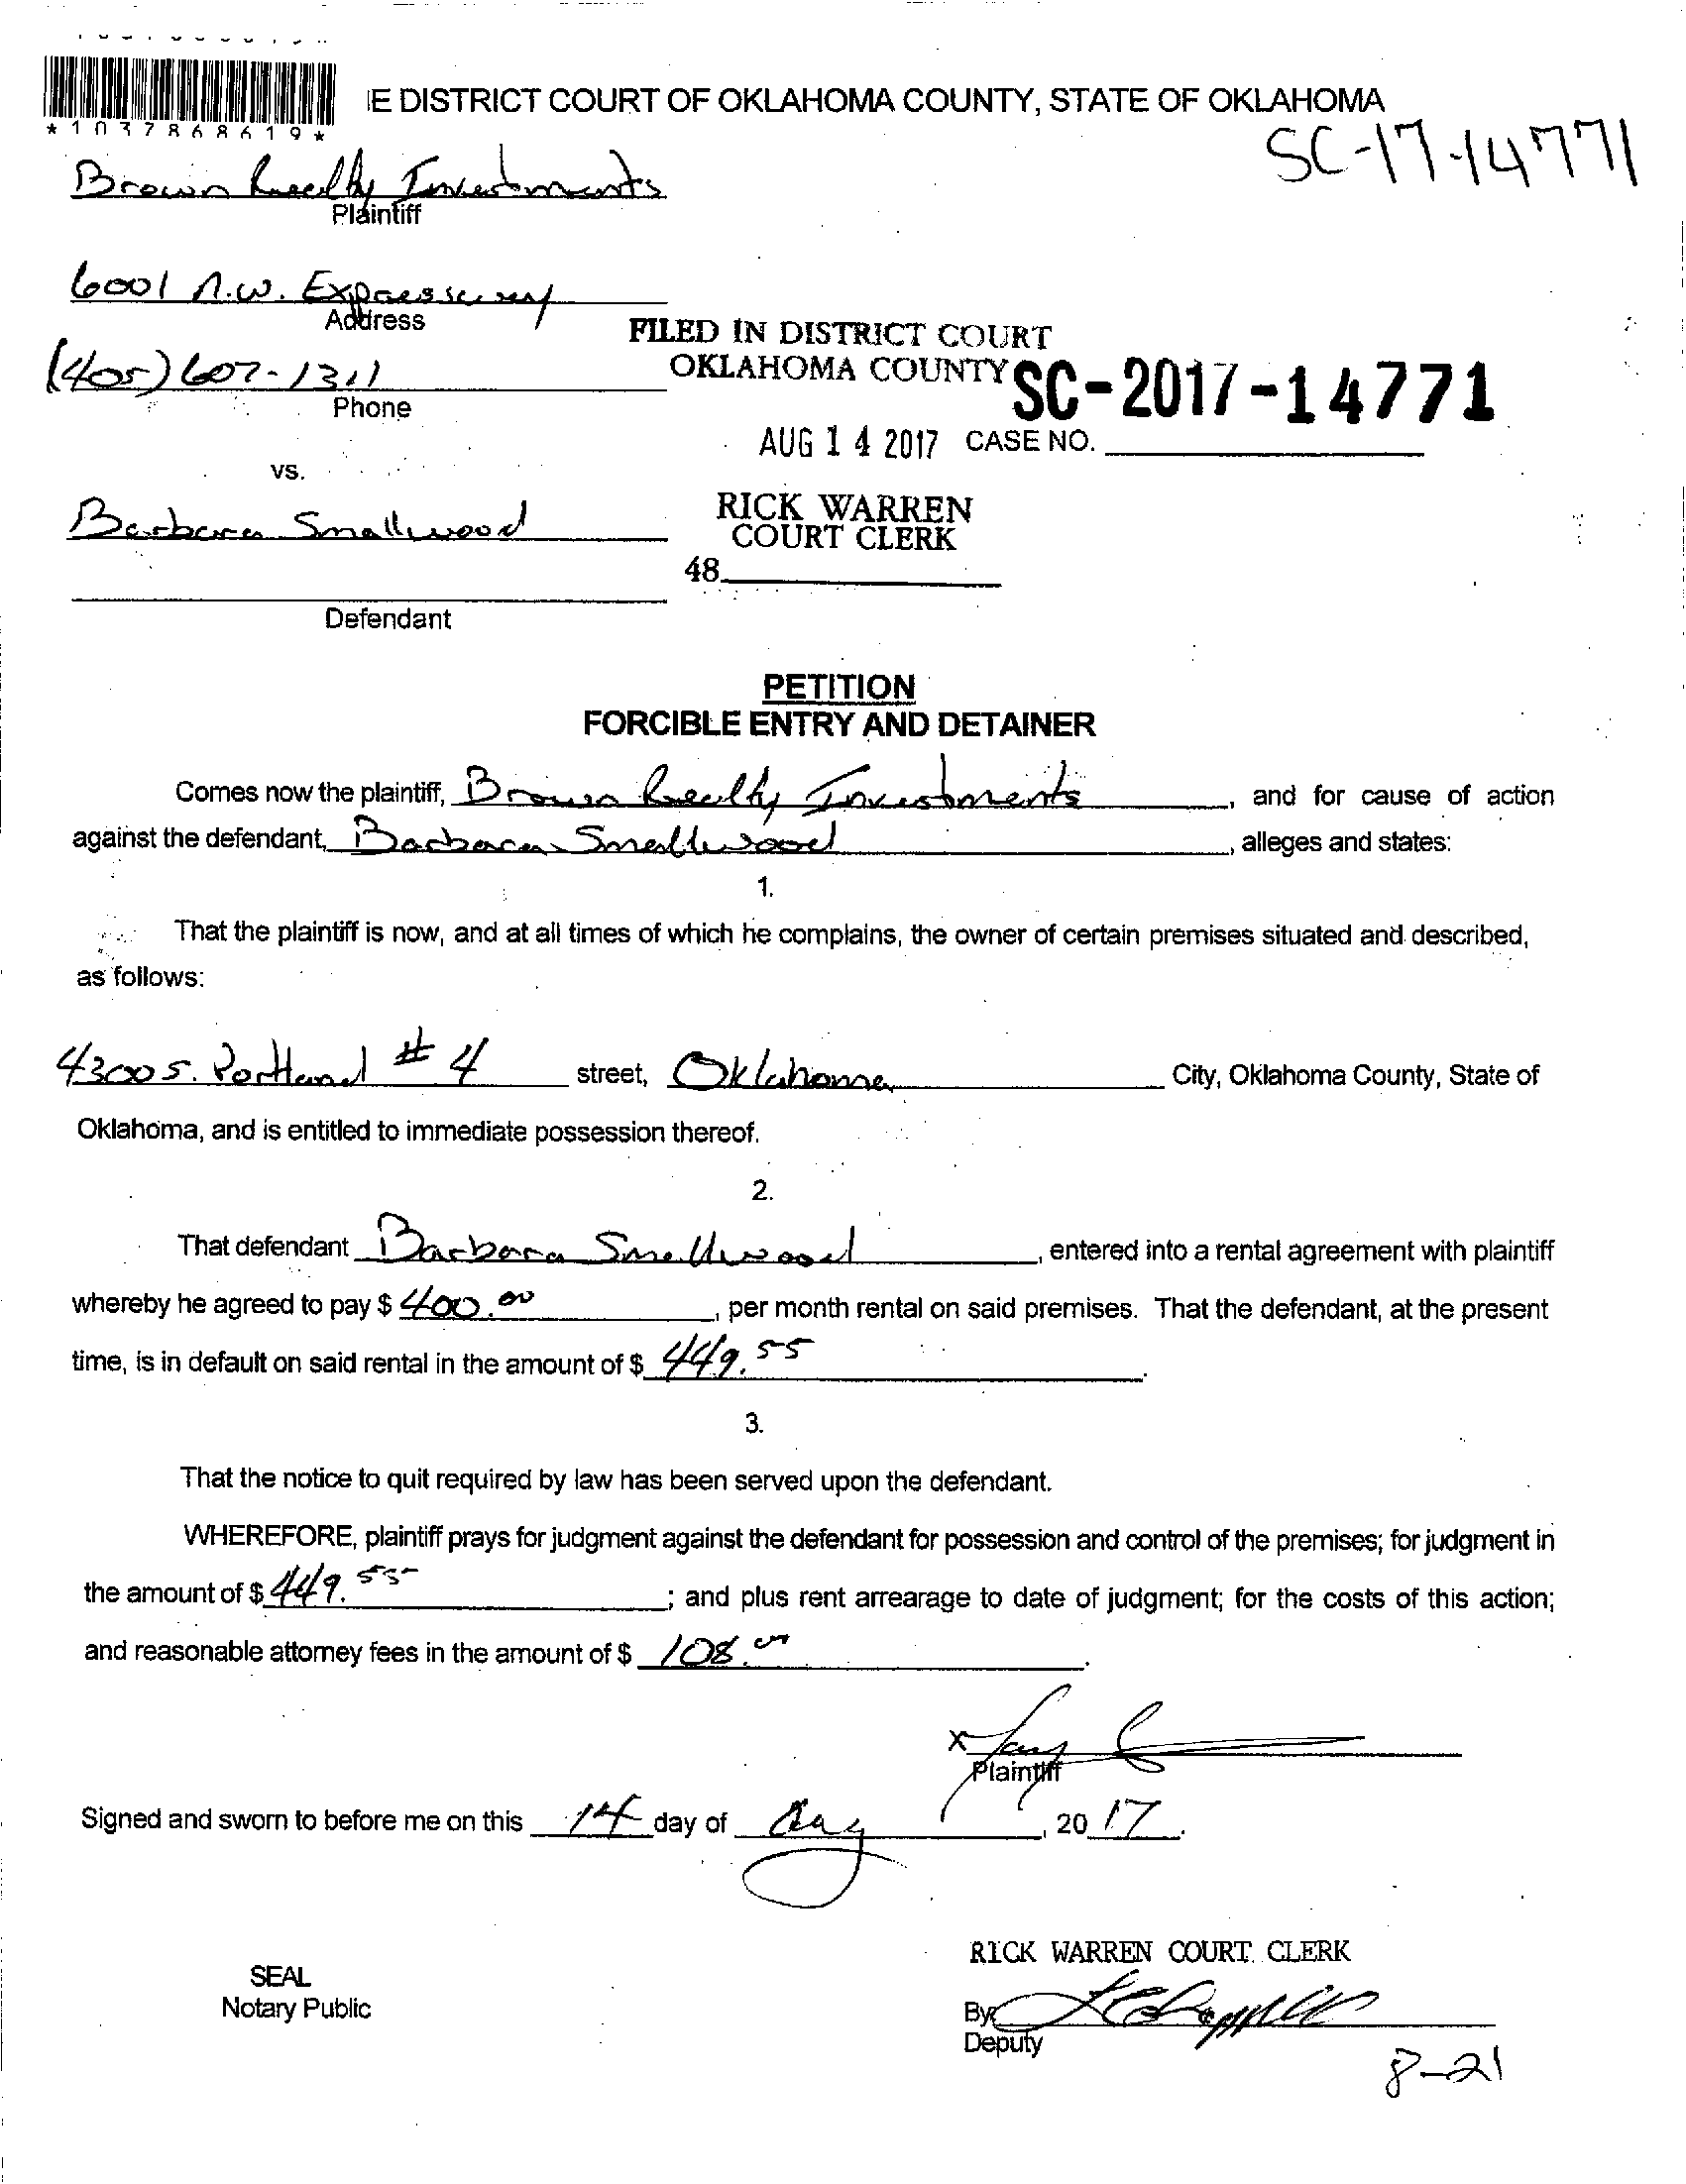 *1037868619*
E DISTRICT COURT OF OKLAHOMA COUNTY, STATE OF OKLAHOMA
SC-17-14771
Brown Realty Investments
Plaintiff
6001 N.W. Expressway
Address
FILED IN DISTRICT COURT
OKLAHOMA COUNTY
(405) 607-1311
Phone
SC-2017-14771
AUG 14 2017 CASE NO.
vs.
Barbara Smallwood
RICK WARREN
COURT CLERK
48
Defendant
PETITION
FORCIBLE ENTRY AND DETAINER
Comes now the plaintiff, Brown Realty Investments, and for cause of action
against the defendant, Barbara Smallwood, alleges and states:
1.
That the plaintiff is now, and at all times of which he complains, the owner of certain premises situated and described,
as follows:
4300 S. Portland # 4 street, Oklahoma City, Oklahoma County, State of
Oklahoma, and is entitled to immediate possession thereof.
2.
That defendant Barbara Smallwood, entered into a rental agreement with plaintiff
whereby he agreed to pay $ 400.00, per month rental on said premises. That the defendant, at the present
time, is in default on said rental in the amount of $ 449.55.
3.
That the notice to quit required by law has been served upon the defendant.
WHEREFORE, plaintiff prays for judgment against the defendant for possession and control of the premises; for judgment in
the amount of $ 449.55; and plus rent arrearage to date of judgment; for the costs of this action;
and reasonable attorney fees in the amount of $ 108.00.
x
Plaintiff
Signed and sworn to before me on this 14 day of Aug, 2017.
RICK WARREN COURT CLERK
SEAL
Notary Public
By
Deputy
8-21